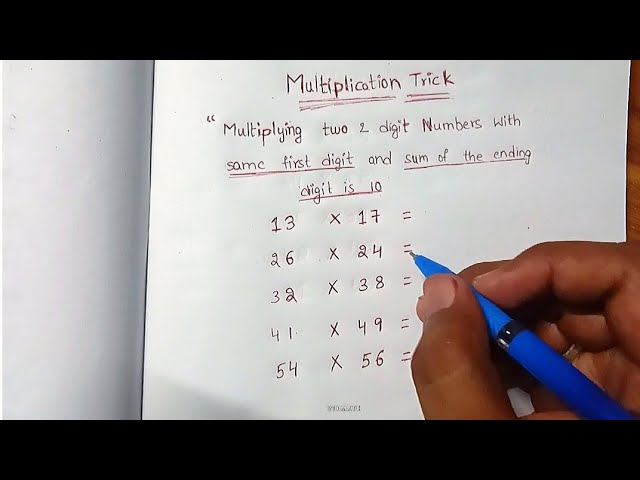 Multiplication Trick
" Multiplying two 2 digit Numbers with
same first digit and sum of the ending
digit is 10
13 X 17 =
26 X 24 =
32 X 38 =
41 X 49 =
54 X 56 =